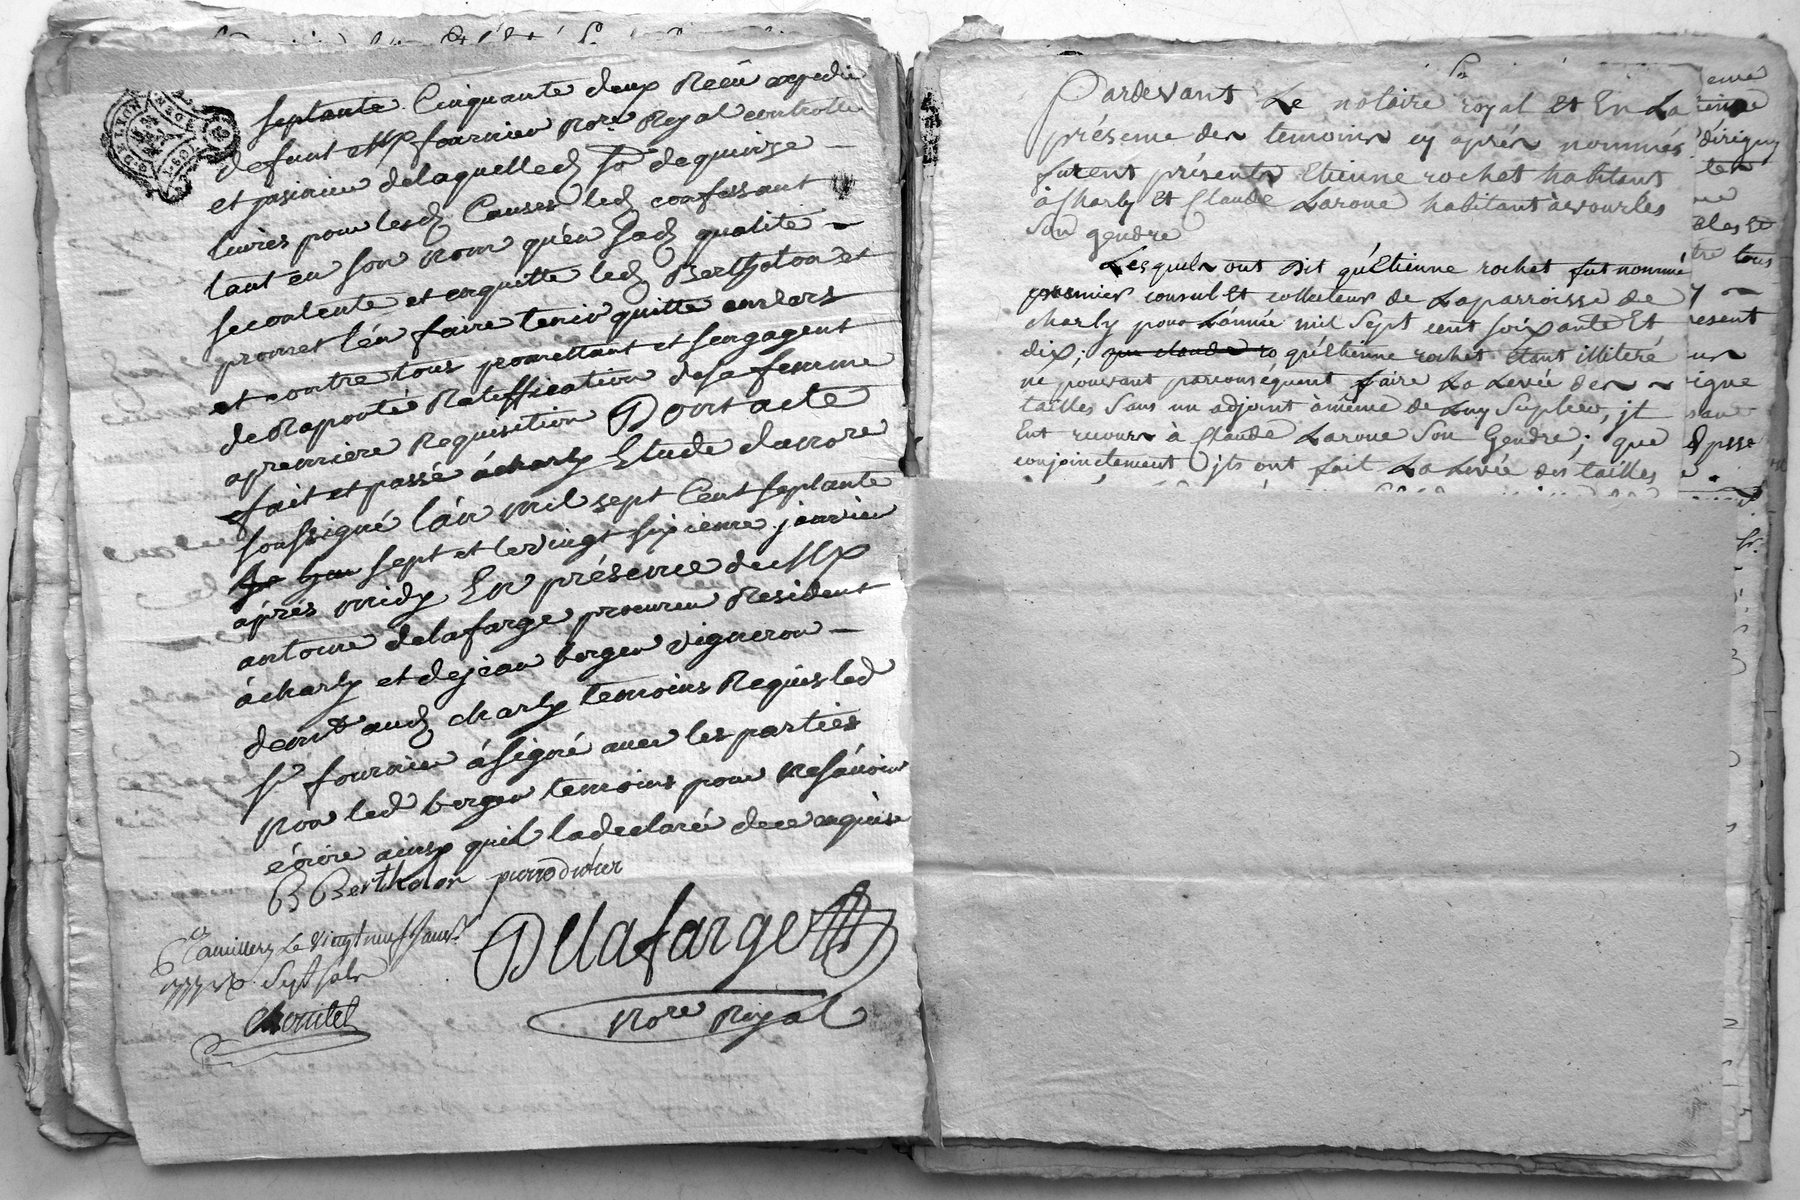 septante Cinquante deux Receu expedie
defunt Mre fournier Nore Royal controlle
et delaquelle d. so de quinze
livres pour lesd. Causes led. confessant
tant en son nom qu'en sad. qualité
se contente et en quitte led. Bertholon et
promet l'en faire tenir quitte envers
et contre tous promettant et s'engagent
de Raporté Ratiffication de sa femme
a premiere Requisition Dont acte
fait et passé à charly Etude du nore
soussigné l'an mil sept Cent septante
sept et le vingt sixieme janvier
après midy En présence de Mre
antoine delafarge procureu Resident
à charly et de jean berger vigneron
demt aud. charly temoins Requis led
sr fournier à signé avec les parties
Non led berger temoins pour ne sávoir
écrire ainsy quil la declaré de ce enquis
B Bertholon pierre didier
Delafarge
Le vingt neuf janvr
1777 Sept sols
Nore Royal
Pardevant Le notaire royal et En La
présence des temoins cy aprés nommés
furent présents Etienne rochet habitant
à Charly Et Claude Laroue habitant a vourles
Son gendre
Lesquels ont dit qu'Etienne rochet fut nommé
premier consul Et collecteur de La parroisse de
charly pour L'année mil Sept cent soixante Et
dix; que claude ro qu'Etienne rochet Etant illiteré
ne pouvant parconséquent faire La Levée des
tailles Sans un adjoint à même de Luy Supleer, jl
Eut recours à Claude Laroue Son Gendre; que
conjointement jls ont fait La Levée des tailles
eme
dirigny
les
ales Et
tre tous
esent
igne